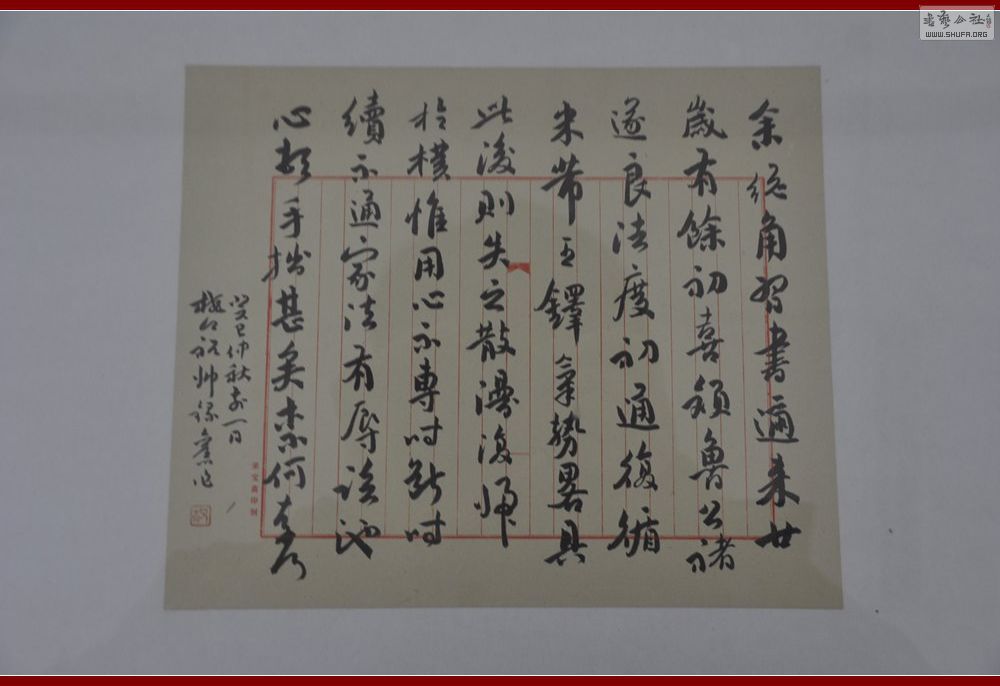 书艺公社
WWW.SHUFA.ORG
余總角習書適来廿
歲有餘初喜顏魯公褚
遂良法度初通復循
米芾王鐸氣勢畧具
此後則失之散漫復歸
於樸惟用心不專时斷时
續不通家法有辱池
心手拙甚矣柰何
癸巳仲秋前一日
祝帅録舊作